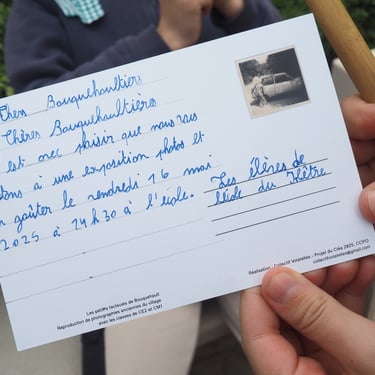 Chers Bouquehaultiers
Chères Bouquehaultières
est avec plaisir que nous vous
tons à une exposition photos et
goûter le vendredi 16 mai
2025 à 14h30 à l'école.
Les élèves de
l'école du Hêtre
Les petit•es facteurs de Bouquehault,
Reproduction de photographies anciennes du village
avec les classes de CE2 et CM1
Réalisation : Collectif Volatelles - Projet du Cléa 2025, CCPO
collectifvolatelles@gmail.com